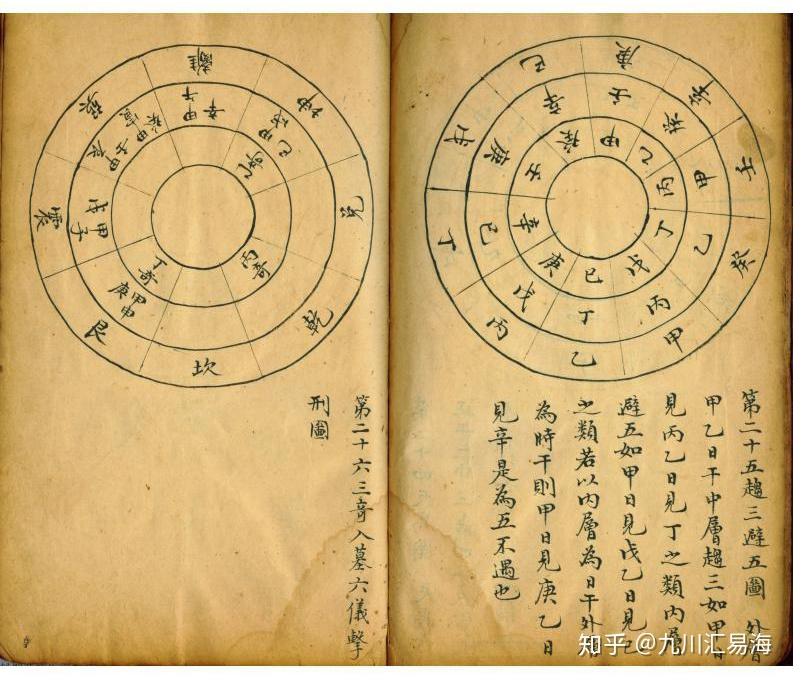 庚 辛 壬 癸 甲 乙 丙 丁 戊 己
壬 癸 甲 乙 丙 丁 戊 己 庚 辛
甲 乙 丙 丁 戊 己 庚 辛 壬 癸
第二十五趨三避五圖 外層
甲乙日干中層趨三如甲日
見丙乙日見丁之類內層
避五如甲日見戊乙日見己
之類若以內層為日干外層
為時干則甲日見庚乙日
見辛是為五不遇也
離 坤 兌 乾 坎 艮 震 巽
甲午辛
甲戌己
甲申庚
甲子戊
甲辰壬
甲寅癸
乙奇
丙奇
丁奇
第二十六三奇入墓六儀擊
刑圖
知乎 @九川汇易海